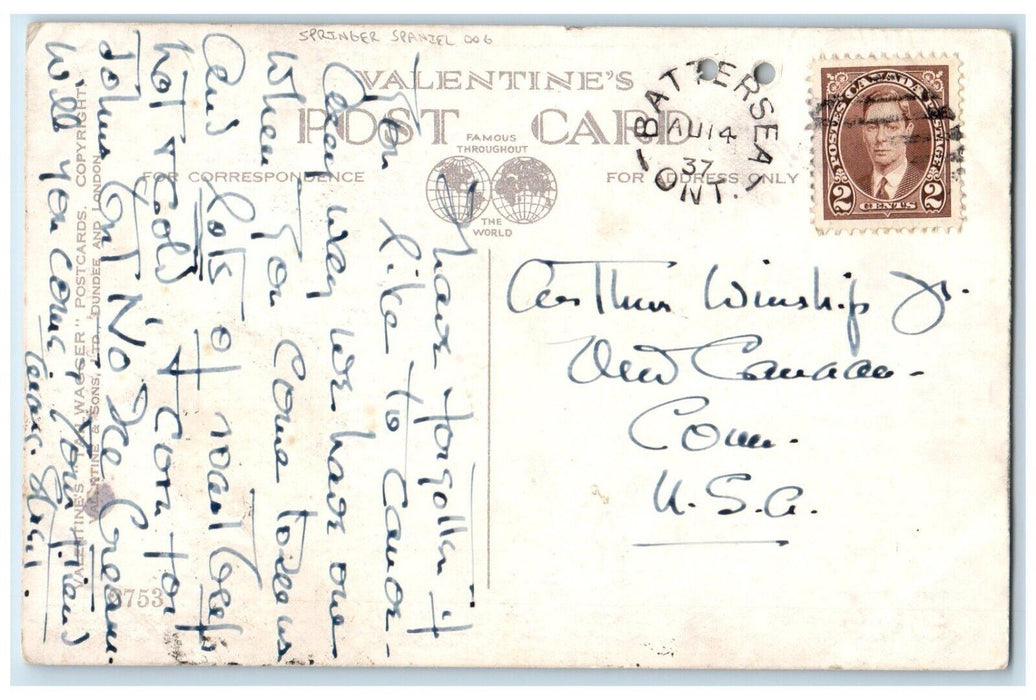 SPRINGER SPANIEL DOG
VALENTINE'S
POST CARD
FAMOUS
THROUGHOUT
THE
WORLD
FOR CORRESPONDENCE
FOR ADDRESS ONLY
BATTERSEA
AU 14
37
ONT.
POSTES CANADA POSTAGE
2 CENTS 2
Arthur Winship Jr.
New Canaan-
Conn.
U.S.A.
I have forgotten if
you like to canoe-
Anyway we have one
When you come to see us
And lots of roast beef,
hot & cold, & corn for
John but No Ice Cream.
Will you come? Your friend
VALENTINE'S "TAIL-WAGGER" POSTCARDS. COPYRIGHT
VALENTINE & SONS, LTD., DUNDEE AND LONDON
3753